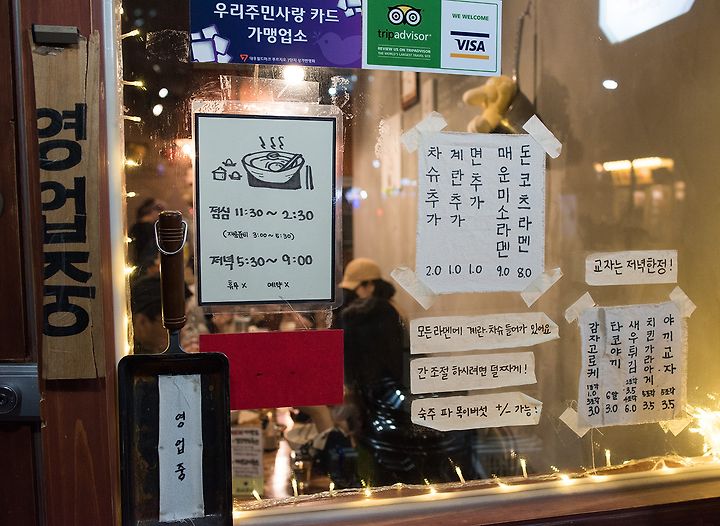 우리주민사랑 카드
가맹업소
tripadvisor
REVIEW US ON TRIPADVISOR
THE WORLD'S LARGEST TRAVEL SITE
WE WELCOME
VISA
영업중
점심 11:30 ~ 2:30
(재료준비 3:00 ~ 5:30)
저녁 5:30 ~ 9:00
휴무 x 예약 x
돈코츠라멘 8.0
매운미소라멘 9.0
면추가 1.0
계란추가 1.0
차슈추가 2.0
모든라멘에 계란·차슈 들어가 있어요
간 조절 하시려면 덜짜게!
숙주 파 목이버섯 +/- 가능!
교자는 저녁한정!
야끼교자 5조각 3.5
치킨가라아게 5조각 3.5
새우튀김 3조각 3.5 5조각 6.0
타코야끼 6알 3.0
감자고로케 1조각 1.0 3조각 3.0
영업중